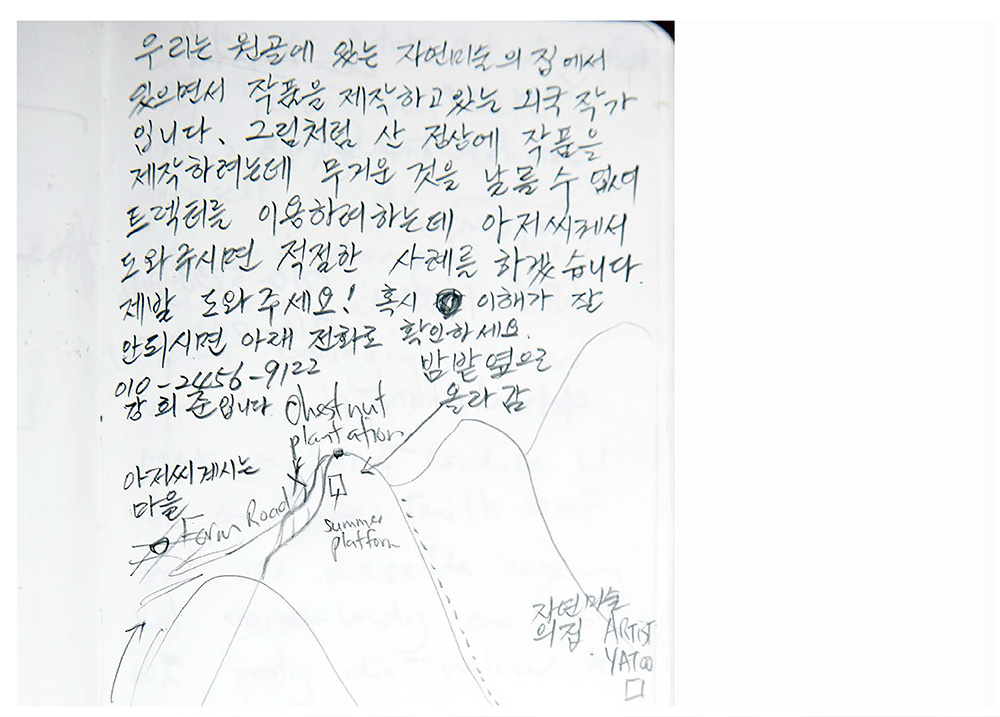 우리는 원골에 있는 자연미술의 집에서
있으면서 작품을 제작하고 있는 외국 작가
입니다. 그림처럼 산 정상에 작품을
제작하려는데 무거운 것을 날를 수 없어
트렉터를 이용하여하는데 아저씨께서
도와주시면 적절한 사례를 하겠습니다.
제발 도와주세요! 혹시 이해가 잘
안되시면 아래 전화로 확인하세요.
010-2456-9122
강희준입니다
밤밭 옆으로
올라감
Chestnut
plantation
아저씨 계시는
마을
Farm Road
summer
platform
자연미술
의집.
ARTIST
YATOO